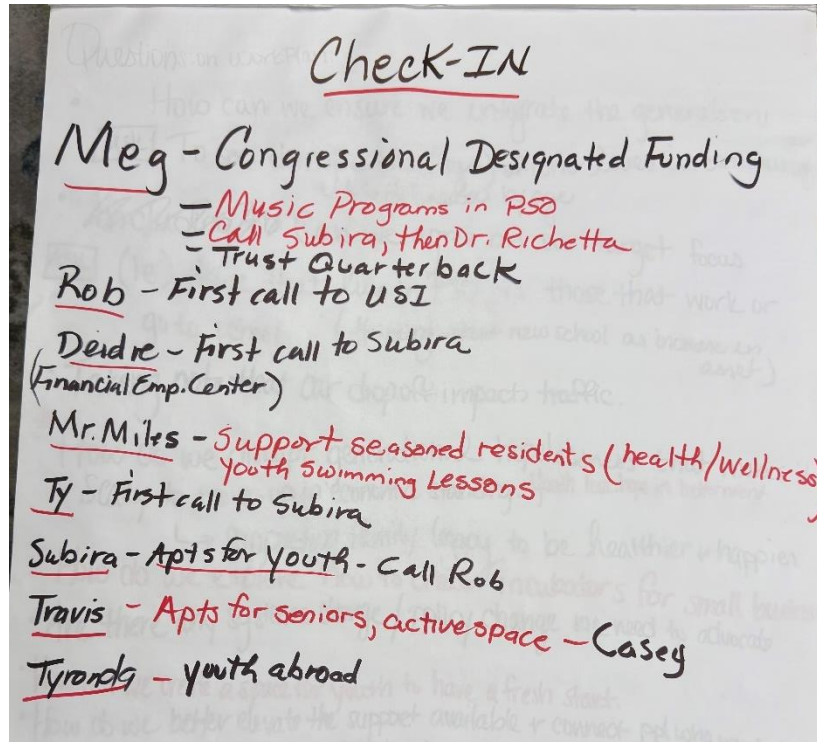 Check-IN
Meg - Congressional Designated Funding
- Music Programs in PSO
- Call Subira, then Dr. Richetta
- Trust Quarterback
Rob - First call to USI
Deidre - First call to Subira
(Financial Emp. Center)
Mr. Miles - Support seasoned residents (health/wellness)
youth swimming Lessons
Ty - First call to Subira
Subira - Apts for youth - Call Rob
Travis - Apts for seniors, active space - Casey
Tyronda - youth abroad